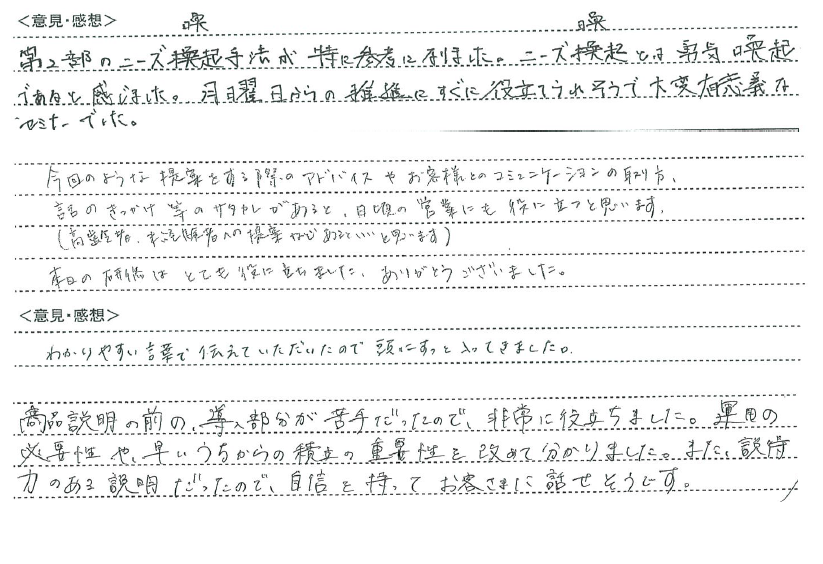 ＜意見・感想＞
喚 喚
第2部のニーズ換起手法が特に参考になりました。ニーズ換起とは勇気喚起
であると感じました。月曜日からの推進にすぐに役立てられそうで大変有意義な
セミナーでした。
今回のような提案をする際のアドバイスやお客様とのコミュニケーションの取り方、
話のきっかけ等のサタカレがあると、日頃の営業にも役に立つと思います。
(高齢者、未経験者への提案などであるといいと思います)
本日の研修はとても役に立ちました、ありがとうございました。
＜意見・感想＞
わかりやすい言葉で伝えていただいたので頭にすっと入ってきました。
商品説明の前の、導入部分が苦手だったので、非常に役立ちました。運用の
必要性や、早いうちからの積立の重要性を改めて分かりました。また、説得
力のある説明だったので、自信を持ってお客さまに話せそうです。